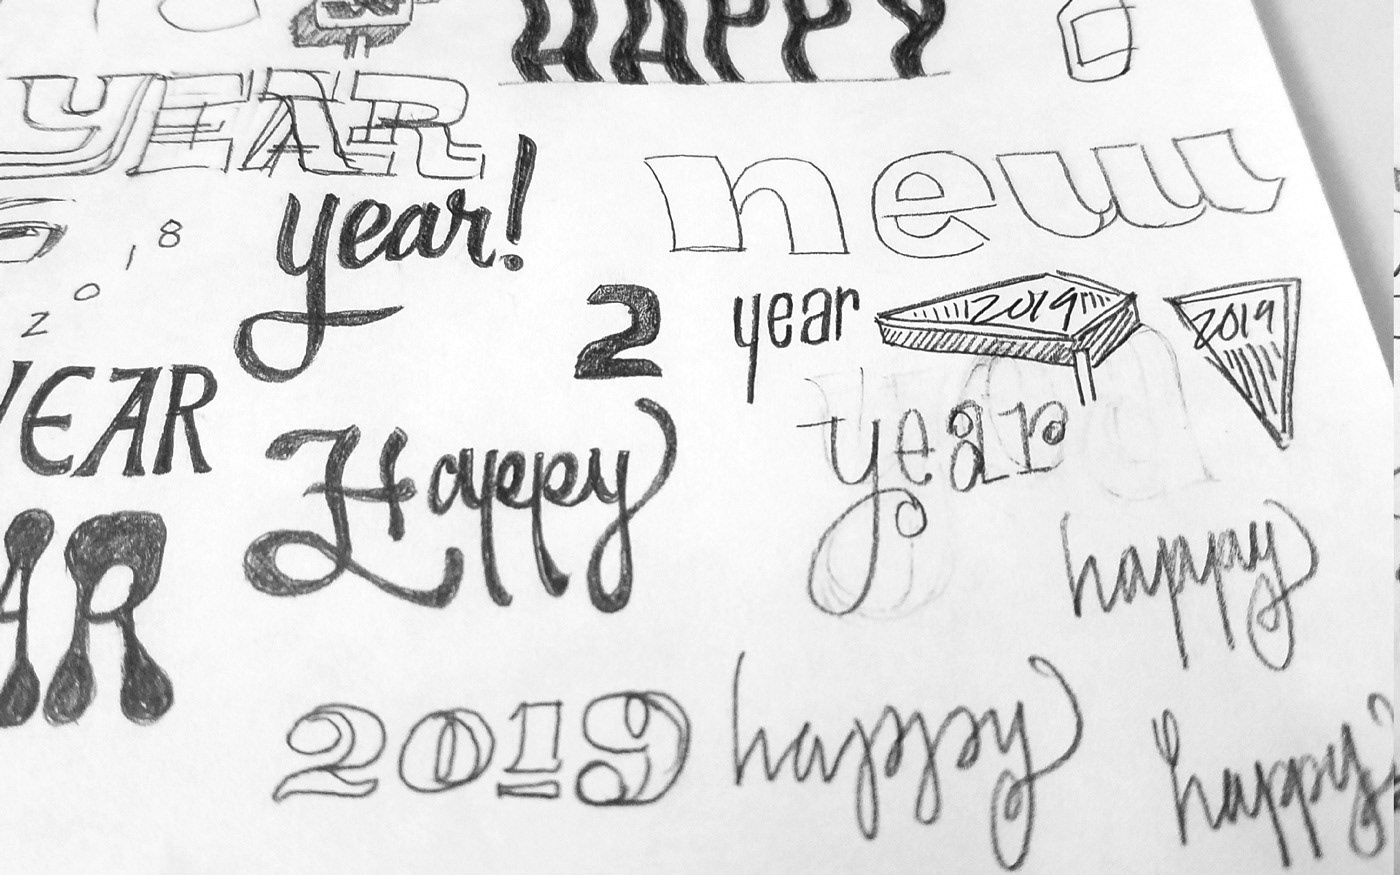 HAPPY
YEAR
new
year!
8
1
0
2
2
year
2019
2019
YEAR
year
Happy
happy
AR
2019
happy
happy